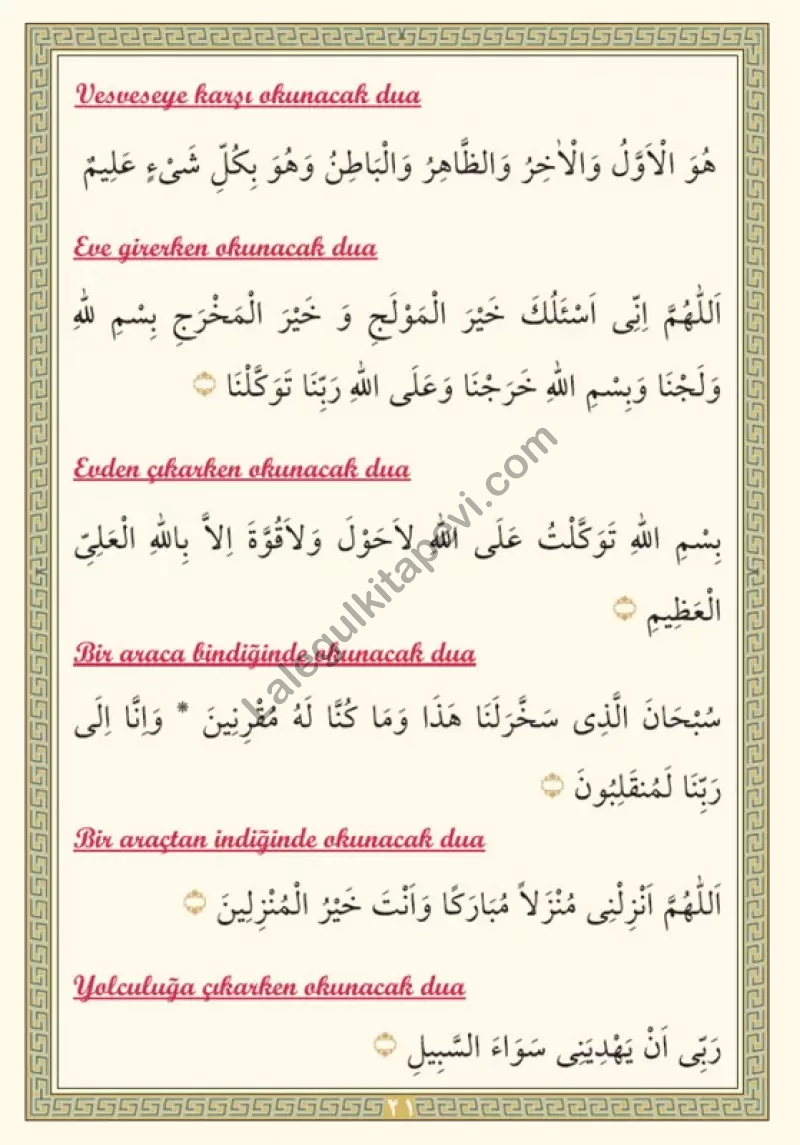 Vesveseye karşı okunacak dua
هُوَ الْاَوَّلُ وَالْاٰخِرُ وَالظَّاهِرُ وَالْبَاطِنُ وَهُوَ بِكُلِّ شَىْءٍ عَلِيمٌ
Eve girerken okunacak dua
اَللّٰهُمَّ اِنِّى اَسْئَلُكَ خَيْرَ الْمَوْلَجِ وَ خَيْرَ الْمَخْرَجِ بِسْمِ للهِ
وَلَجْنَا وَبِسْمِ اللهِ خَرَجْنَا وَعَلَى اللهِ رَبِّنَا تَوَكَّلْنَا
Evden çıkarken okunacak dua
بِسْمِ اللهِ تَوَكَّلْتُ عَلَى اللهِ لاَحَوْلَ وَلاَقُوَّةَ اِلاَّ بِاللهِ الْعَلِىِّ
الْعَظِيمِ
Bir araca bindiğinde okunacak dua
سُبْحَانَ الَّذِى سَخَّرَلَنَا هَذَا وَمَا كُنَّا لَهُ مُقْرِنِينَ * وَاِنَّا اِلَى
رَبِّنَا لَمُنقَلِبُونَ
Bir araçtan indiğinde okunacak dua
اَللّٰهُمَّ اَنْزِلْنِى مُنْزَلاً مُبَارَكًا وَاَنْتَ خَيْرُ الْمُنْزِلِينَ
Yolculuğa çıkarken okunacak dua
رَبِّى اَنْ يَهْدِيَنِى سَوَاءَ السَّبِيلِ
٢١
kalegulkitapevi.com